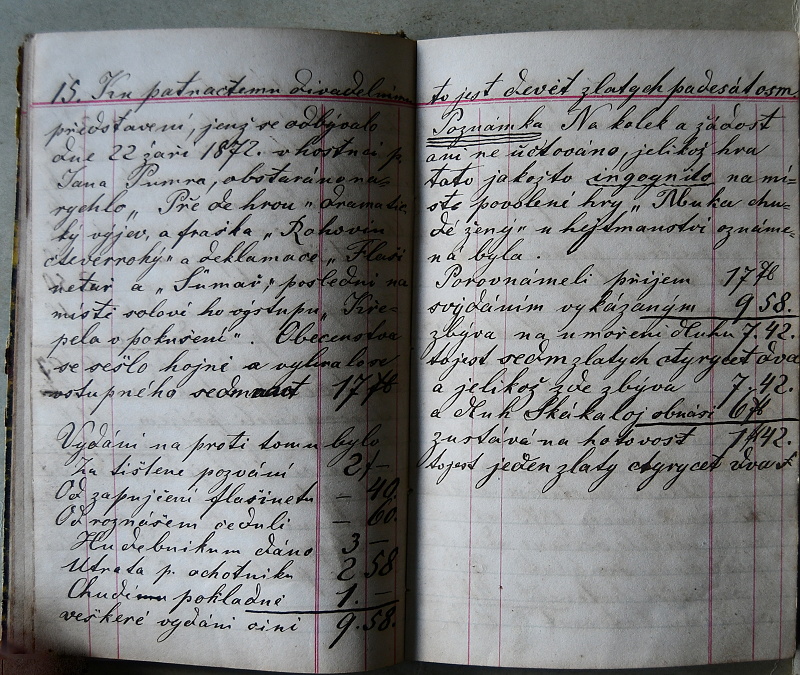 15. Ku patnactemu divadelnímu
představení, jenž se odbývalo
dne 22 září 1872. v hostinci p.
Jana Pumra, obstaráno na-
rychlo „Pře de hrou" dramatic-
ký výjev, a fraška „Rohovín
čtverrohý" a deklamace „Flaši
netář a „Šumař" poslední na
místě solové ho výstupu „Kře-
pela v pokušení". Obecenstva
se sešlo hojně a vybralo se
vstupného 17 zl
Vydání na proti tomu bylo
Za tištěné pozvání 2 f –
Od zapujčení flašinetu – 40.
Od roznášení cedulí – 60.
Hudebníkum dáno 3 –
Utrata p. ochotníku 2 58
Chudé pokladně 1. –
veškeré vydání činí 9.58.
to jest devět zlatych padesát osm
Poznámka Na kolek a žádost
ani ne učtováno, jelikož hra
tato jakožto ingognito na mí-
stě povolení hry „Muka chu-
dé ženy" u hejtmanství oznáme-
ná byla.
Porovnámeli příjem 17 zl
svýdáním vykázaným 9 58.
zbýva na umoření dluhu 7.42.
tojest sedm zlatych čtyrycet dva
a jelikož zde zbýva 7.42.
a dluh Skákaloj obnáší 6 zl
zustává na hotovost 1 zl 42.
tojest jeden zlaty čtyrycet dva